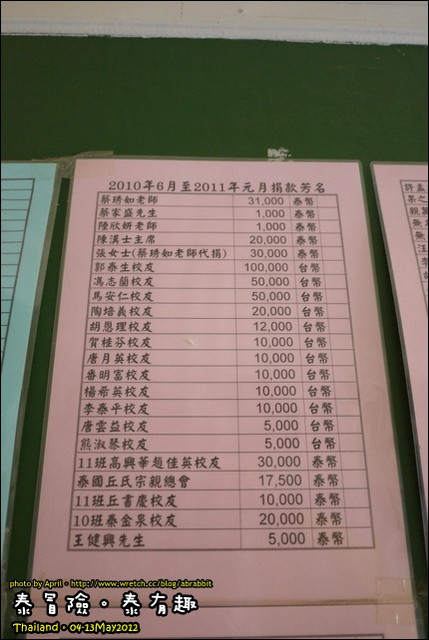 2010年6月至2011年元月捐款芳名
蔡琇如老師 31,000 泰幣
蔡家盛先生 1,000 泰幣
陸欣妍老師 1,000 泰幣
陳漢士主席 20,000 泰幣
張女士(蔡琇如老師代捐) 30,000 泰幣
郭泰生校友 100,000 台幣
馮志蘭校友 50,000 台幣
馬安仁校友 50,000 台幣
陶培義校友 20,000 台幣
胡恩理校友 12,000 台幣
賀桂芬校友 10,000 台幣
唐月英校友 10,000 台幣
番明富校友 10,000 台幣
楊希英校友 10,000 台幣
李泰平校友 10,000 台幣
唐雲益校友 5,000 台幣
熊淑琴校友 5,000 台幣
11班高興華趙佳英校友 30,000 泰幣
泰國丘氏宗親總會 17,500 泰幣
11班丘書慶校友 10,000 泰幣
10班泰金泉校友 20,000 泰幣
王健興先生 5,000 泰幣
photo by April。http://www.wretch.cc/blog/abrabbit
泰冒險。泰有趣
Thailand。04-13May2012